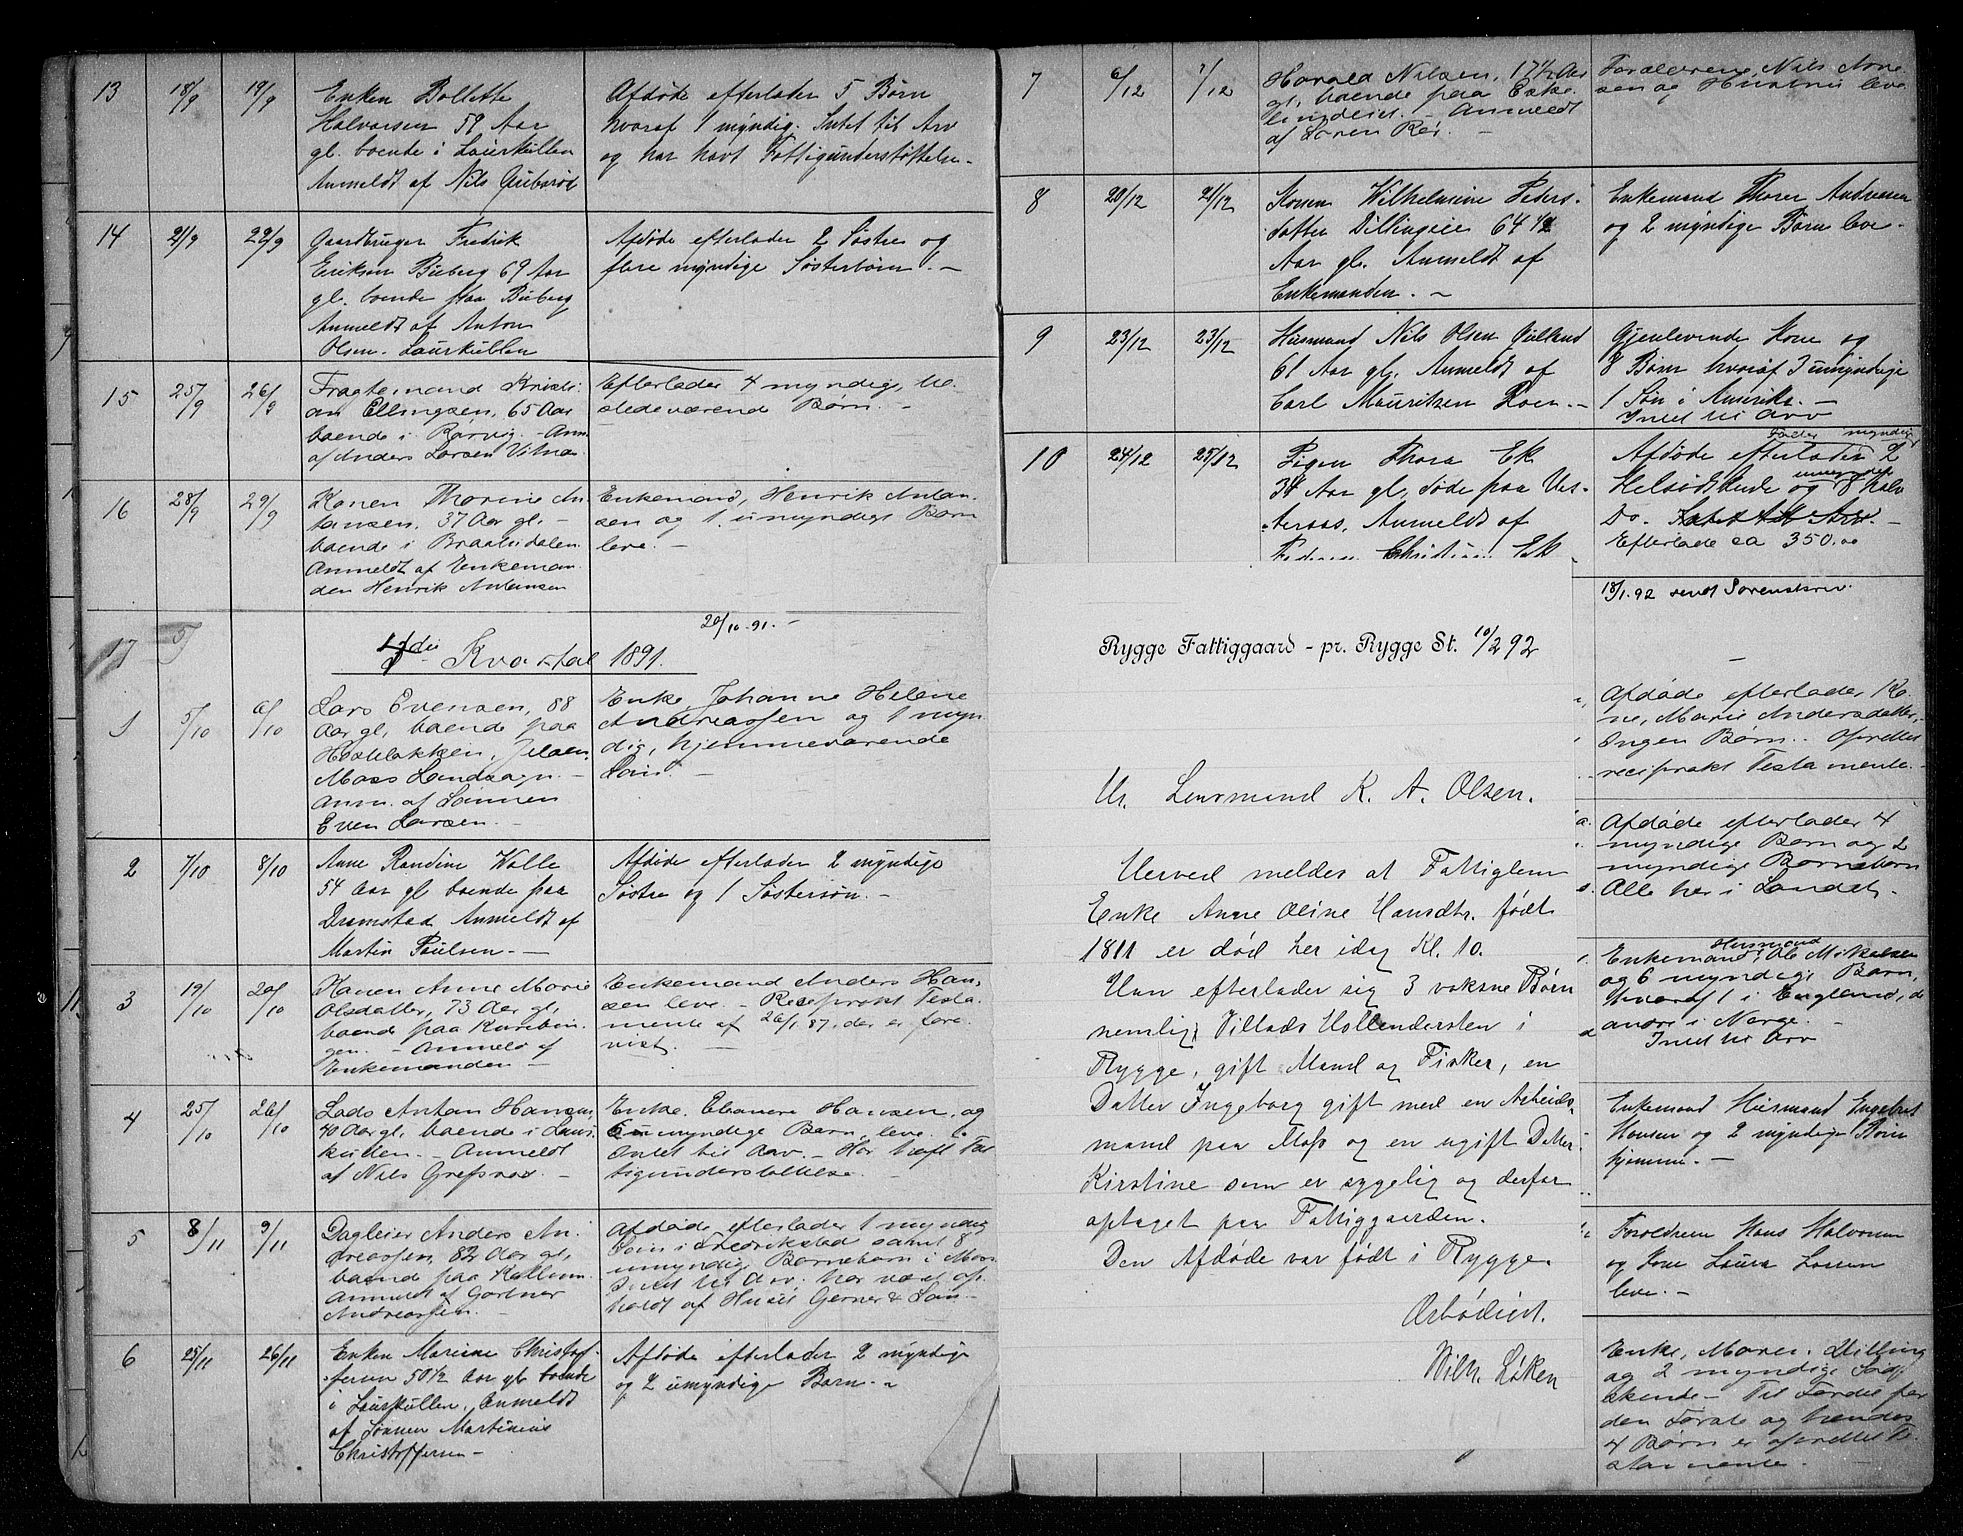 13 18/9 19/9 Enken Bollette
Halvorsen 59 Aar
gl. boende i Laurkullen
Anmeldt af Nils Guberød
Afdøde efterlader 5 Børn
hvoraf 1 myndig. Intet til Arv
og har havt Fattigunderstøttelse.
14 21/9 22/9 Gaardbruger Fredrik
Eriksen Buberg 69 Aar
gl. boende paa Buberg
Anmeldt af Anton
Olsen. Laurkullen
Afdøde efterlader 2 Søstre og
flere myndige Søsterbørn. -
15 25/9 26/9 Fragtemand Kristi-
an Ellingsen, 65 Aar
boende i Rørvig. - Anm.
af Anders Larsen Vitnæs
Efterlader 4 myndige,
stedeværende Børn. -
16 28/9 29/9 Konen Thorine An-
tonsen, 37 Aar gl. -
boende i Braatedalen.
Anmeldt af Enkeman-
den Henrik Antonsen
Enkemand, Henrik Anton-
sen og 1 umyndigt Barn
leve. -
17 5/
20/10. 91. -
4de Kvartal 1891.
1 5/10 6/10 Lars Evensen, 88
Aar gl, boende paa
Jeløen,
Moss Landsogn. -
Anm. af Sønnen
Even Larsen. -
Enke, Johanne Helene
Andreassen og 1 myn
dig, hjemmeværende
Søn. -
2 7/10 8/10 Anne Randine Walle
54 Aar gl boende paa
Dramstad Anmeldt af
Martin Paulsen. -
Afdøde efterlader 2 myndige
Søstre og 1 Søstersøn. -
3 19/10 20/10 Konen Anne Marie
Olsdatter, 73 Aar gl,
boende paa Kurebin-
gen. - Anmeld af
Enkemanden -
Enkemand Anders Han-
sen leve. - Reciprokt Testa-
mente af 26/1 87, der er fore-
vist. -
4 25/10 26/10 Lods Anton Hansen,
40 Aar gl, boende i Laur-
kullen. - Anmeldt
af Nils Grefsrød -
Enke, Eleanore Hansen, og
6 umyndige Børn leve. -
Intet til Arv. - Har havt Fat
tigunderstøttelse. -
5 8/11 9/11 Dagleier Anders An-
dreassen, 82 Aar gl,
boende paa Kallum.
Anmeldt af Gartner
Andreassen. -
Afdøde efterlader 1 myndig
Søn i Fredrikstad samt 8
umyndige Børnebørn i Moss
Intet til Arv. har været op-
holdt af Gerner & Søn -
6 25/11 26/11 Enken Marine Christof-
fersen 50 1/2 Aar gl boende
i Laurkullen. Anmeldt
af Sønnen Martinius
Christoffersen -
Afdøde efterlader 2 myndige
og 2 umyndige Børn. -
7 6/12 7/12 Harald Nilsen, 17 1/2 Aar
gl, boende paa Eske-
lundeiet. - Anmeldt
af Søren Rør. -
Forældrene, Nils Arne-
sen og Hustru leve
8 20/12 21/12 Konen Wilhelmine Peders-
datter Dillingeie 64 1/2
Aar gl. Anmeldt af
Enkemanden. -
Enkemand Thorer Andresen
og 2 myndige Børn leve. -
9 23/12 23/12 Husmand Nils Olsen Gulland
61 Aar gl. Anmeldt af
Carl Mauritzen Roer. -
Gjenlevende Kone og
8 Børn hvoraf 3 umyndige
1 Søn i Amerika. -
Intet til Arv
10 24/12 25/12 Pigen Thora Ek
34 Aar gl, døde paa Vær-
Aaraas, Anmeldt af
Faderen Christian Ek
Fader myndig
Afdøde efterlader 2
umyndige
Helsødskende og 8 halv
Do. Intet til Arv. -
Efterlade ca 350,00
18/1. 92 sendt Sorenskriv.
Afdøde efterlader Ko-
ne, Marie Andersdatter,
Ingen Børn. - Oprettet
reciprokt Testamente. -
Afdøde efterlader 4
myndige Børn og 2
myndige Børnebørn
Alle her i Landet. -
Husmand
Enkemand, Ole Mikelsen
og 6 myndige Børn,
hvoraf 1 i England, d
andre i Norge. -
Intet til Arv
Enkemand Husmand Engebret
Hansen og 2 myndige Børn
hjemme. -
Forældrene Hans Halvorsen
og Kone Laura Larsen
leve. -
Enke, Maren Dilling
og 2 myndige Sød-
skende - Til Fordel for
den Første og hendes
4 Børn er oprettet Te-
stamente. -
Rygge Fattiggaard - pr. Rygge St. 10/2 92
Hr. Lensmand K. A. Olsen.
Herved meldes at Fattiglem
Enke Anne Oline Hansdtr. født
1811 er død her idag Kl. 10.
Hun efterlader sig 3 voksne Børn
nemlig Villads Hollendersten i
Rygge, gift Mand og Fisker, en
Datter Ingeborg gift med en Arbeids-
mand paa Moss og en ugift Datter
Kirstine som er sygelig og derfor
optaget paa Fattiggaarden.
Den Afdøde var født i Rygge.
Ærbødigst.
Wilh. Løken